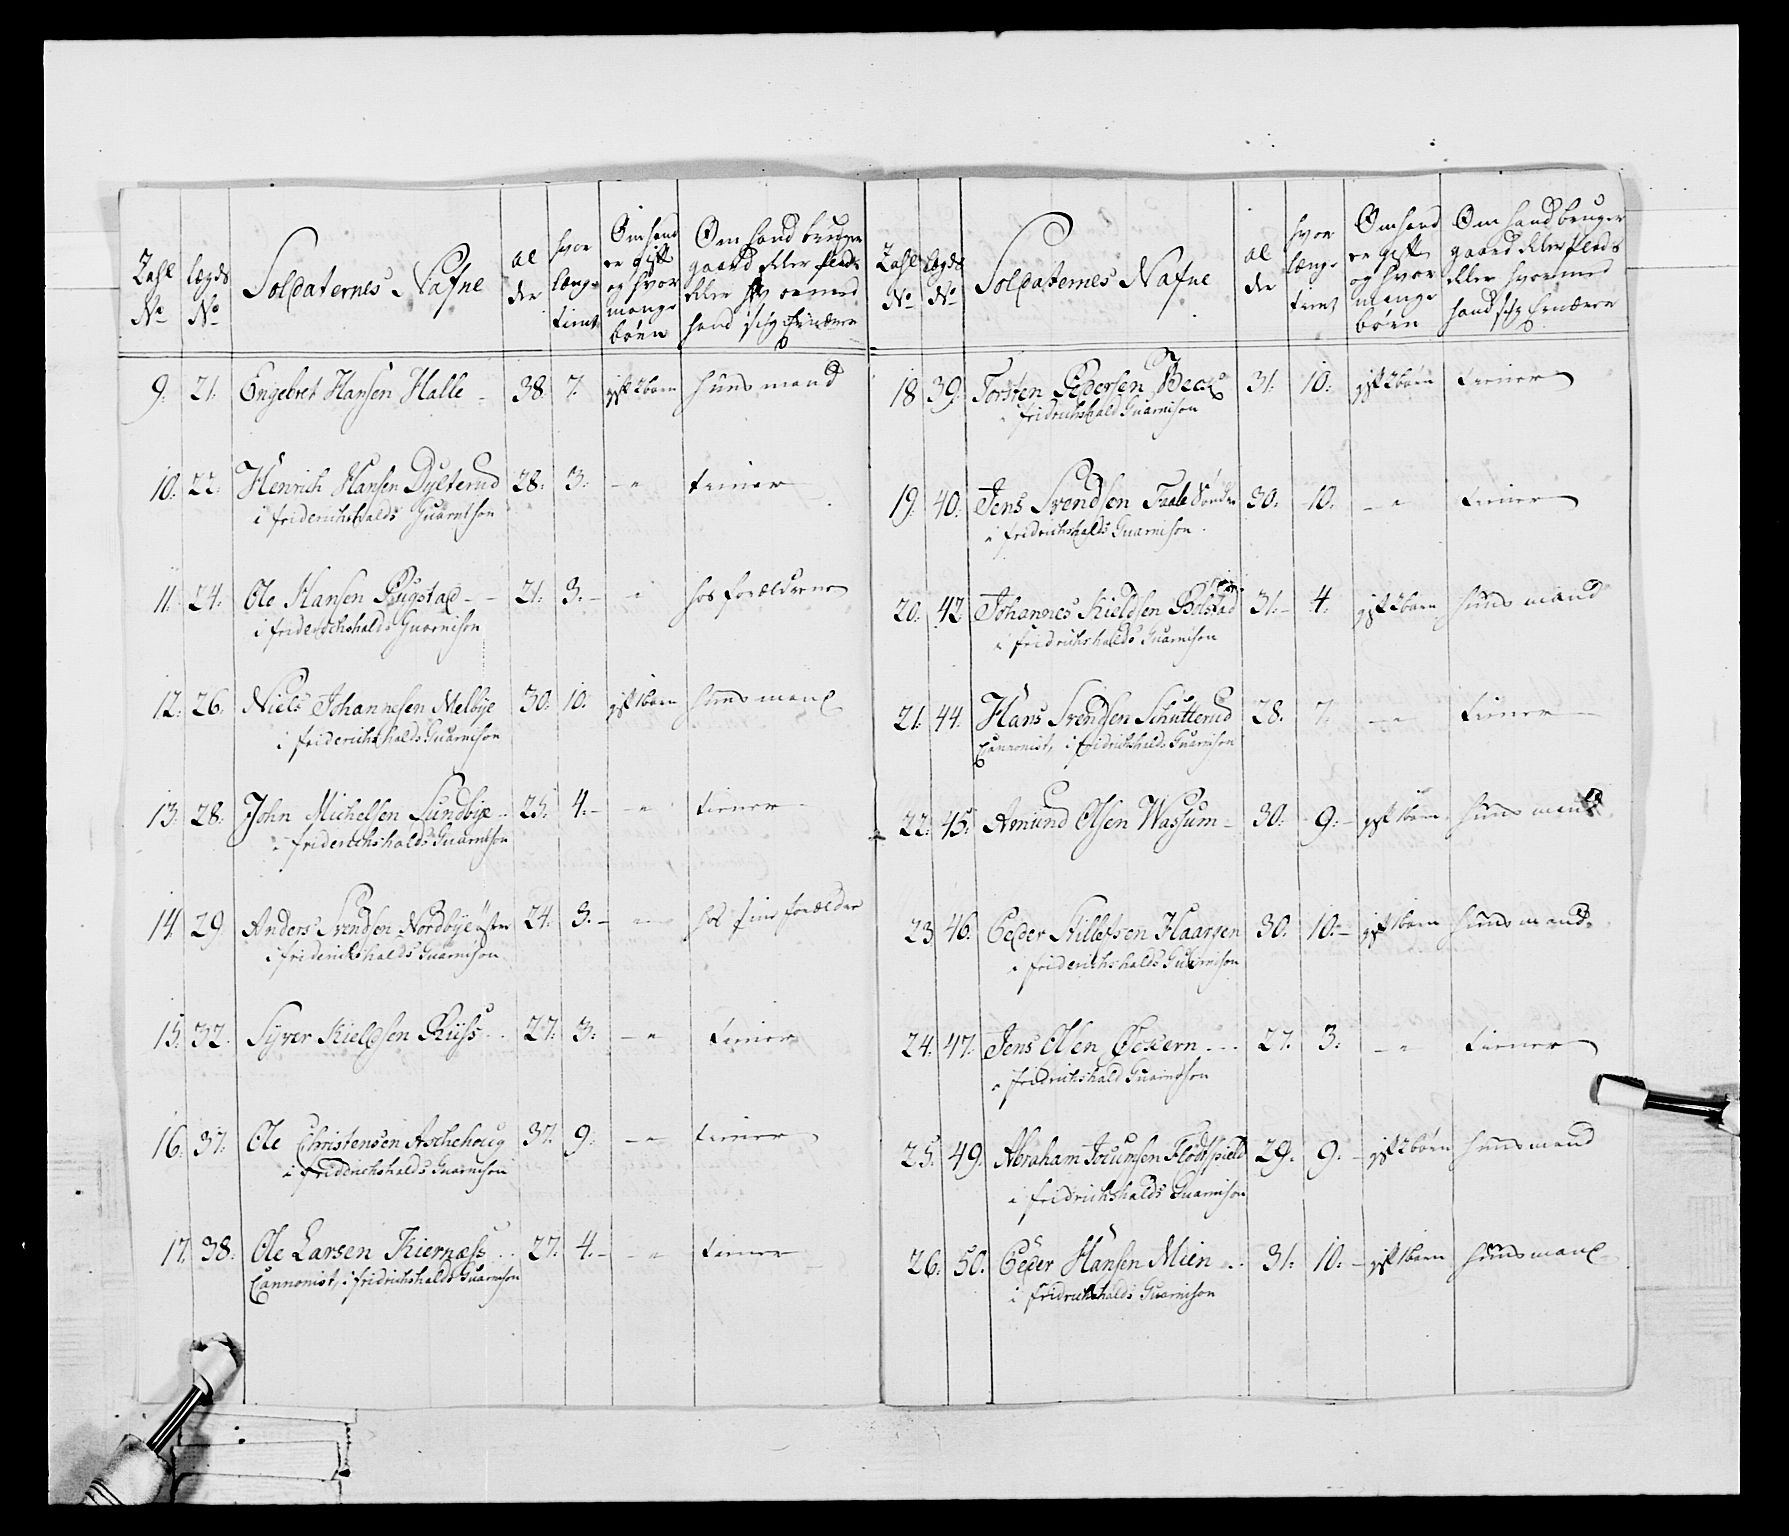 Zahl No | Lægds No | Soldaternes Nafne | alder | hvor længe tient | Om hand er gift og hvor mange børn | Om hand bruger gaard eller plads eller hvormed hand sig Ernærer
9. 21. Engebret Hansen Halle 38. 7. gift 2 børn huusmand
10. 22. Henrich Hansen Dÿlterud 28. 3. — " tiener
i friderichshalds Guarnison
11. 24. Ole Hansen Rugstad 21. 3. — " hos forældrene
i friderichshalds Guarnison
12. 26. Niels Johannesen Melbÿe 30. 10. gift 1 barn huusmand
i friderichshalds Guarnison
13. 28. John Michelsen Sundbÿe 25. 4. — " tiener
i friderichshalds Guarnison
14. 29. Anders Svendsen Nordbÿe østre 24. 3. — " hos sine forælder
i friderichshalds Guarnison
15. 32. Sÿver Kieldsen Rüss 27. 3. — " tiener
16. 37. Ole Christensen Aschehoug 37. 9. — " tiener
i friderichshalds Guarnison
17. 38. Ole Larsen Kiernæss 27. 4. — " tiener
Cannonist, i fridrichshalds Guarnison
Zahl No | Lægds No | Soldaternes Nafne | alder | hvor længe tient | Om hand er gift og hvor mange børn | Om hand bruger gaard eller plads eller hvormed hand sig Ernærer
18 39. Torsten Pedersen Beck 31. 10. gift 2 børn tiener
i fridrichshald Guarnison
19. 40. Jens Svendsen Taale Søndre 30. 10. — " tiener
i fridrichshalds Guarnison
20. 42. Johannes Kieldsen Bolstad 31. 4. gift 2 børn huusmand
i fridrichshalds Guarnison
21. 44. Hans Svendsen Schutterud 28. 7. — " tiener
Cannonist, i fridrichshalds Guarnison
22. 45. Amund Olsen Wassum 30. 9. gift 1 barn huusmand
23 46. Peder Killessen Haargen 30. 10. gift 1 barn huusmand
i friderichshalds Guarnison
24. 47. Jens Olsen Öckern 27. 3. — " tiener
i fridrichshald Guarnison
25. 49. Abraham Joramsen Flodtpield 29. 9. gift 2 børn huusmand
i fridrichshalds Guarnison
26. 50. Peder Hansen Mien 31. 10. gift 1 barn huusmand
i fridrichshalds Guarnison